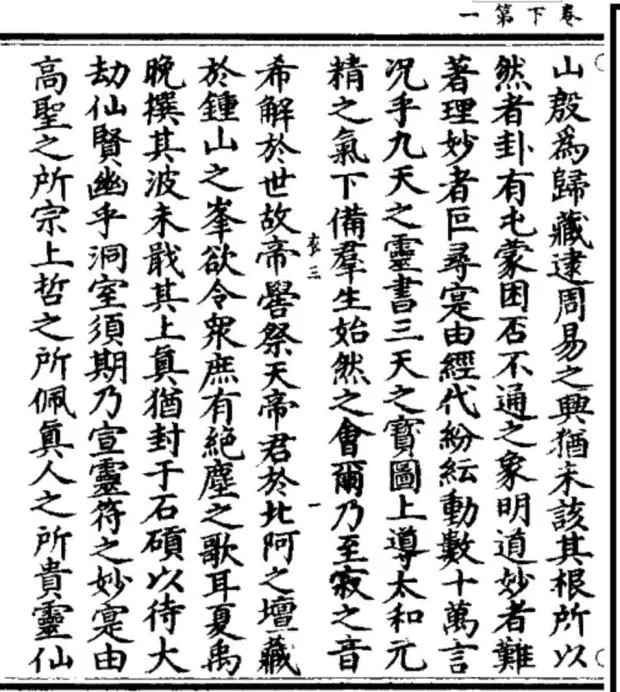 卷下第一
山殷為歸藏逮周易之興猶未該其根所以
然者卦有屯蒙困否不通之象明道妙者難
著理妙者叵尋寔由經代紛紜動數十萬言
況乎九天之靈書三天之寶圖上導太和元
精之氣下備羣生始然之會爾乃至寂之音
衣三
一
希解於世故帝嚳祭天帝君於北阿之壇藏
於鍾山之峯欲令衆庶有絕塵之歌耳夏禹
晚撰其波未戢其上真猶封于石碩以待大
劫仙賢幽乎洞室須期乃宣靈符之妙寔由
高聖之所宗上哲之所佩真人之所貴靈仙